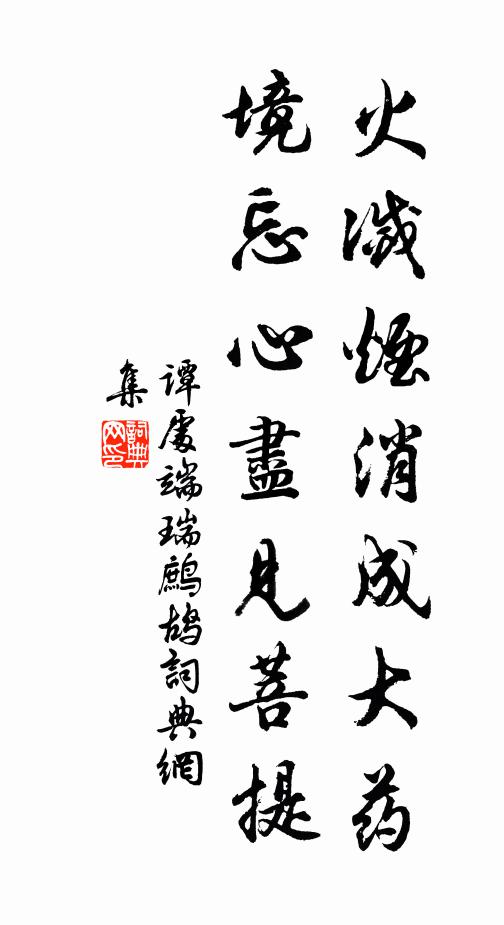 火滅煙消成大药
境忘心盡見菩提
譚處端瑞鷓鴣詞典網
集
詞典網印